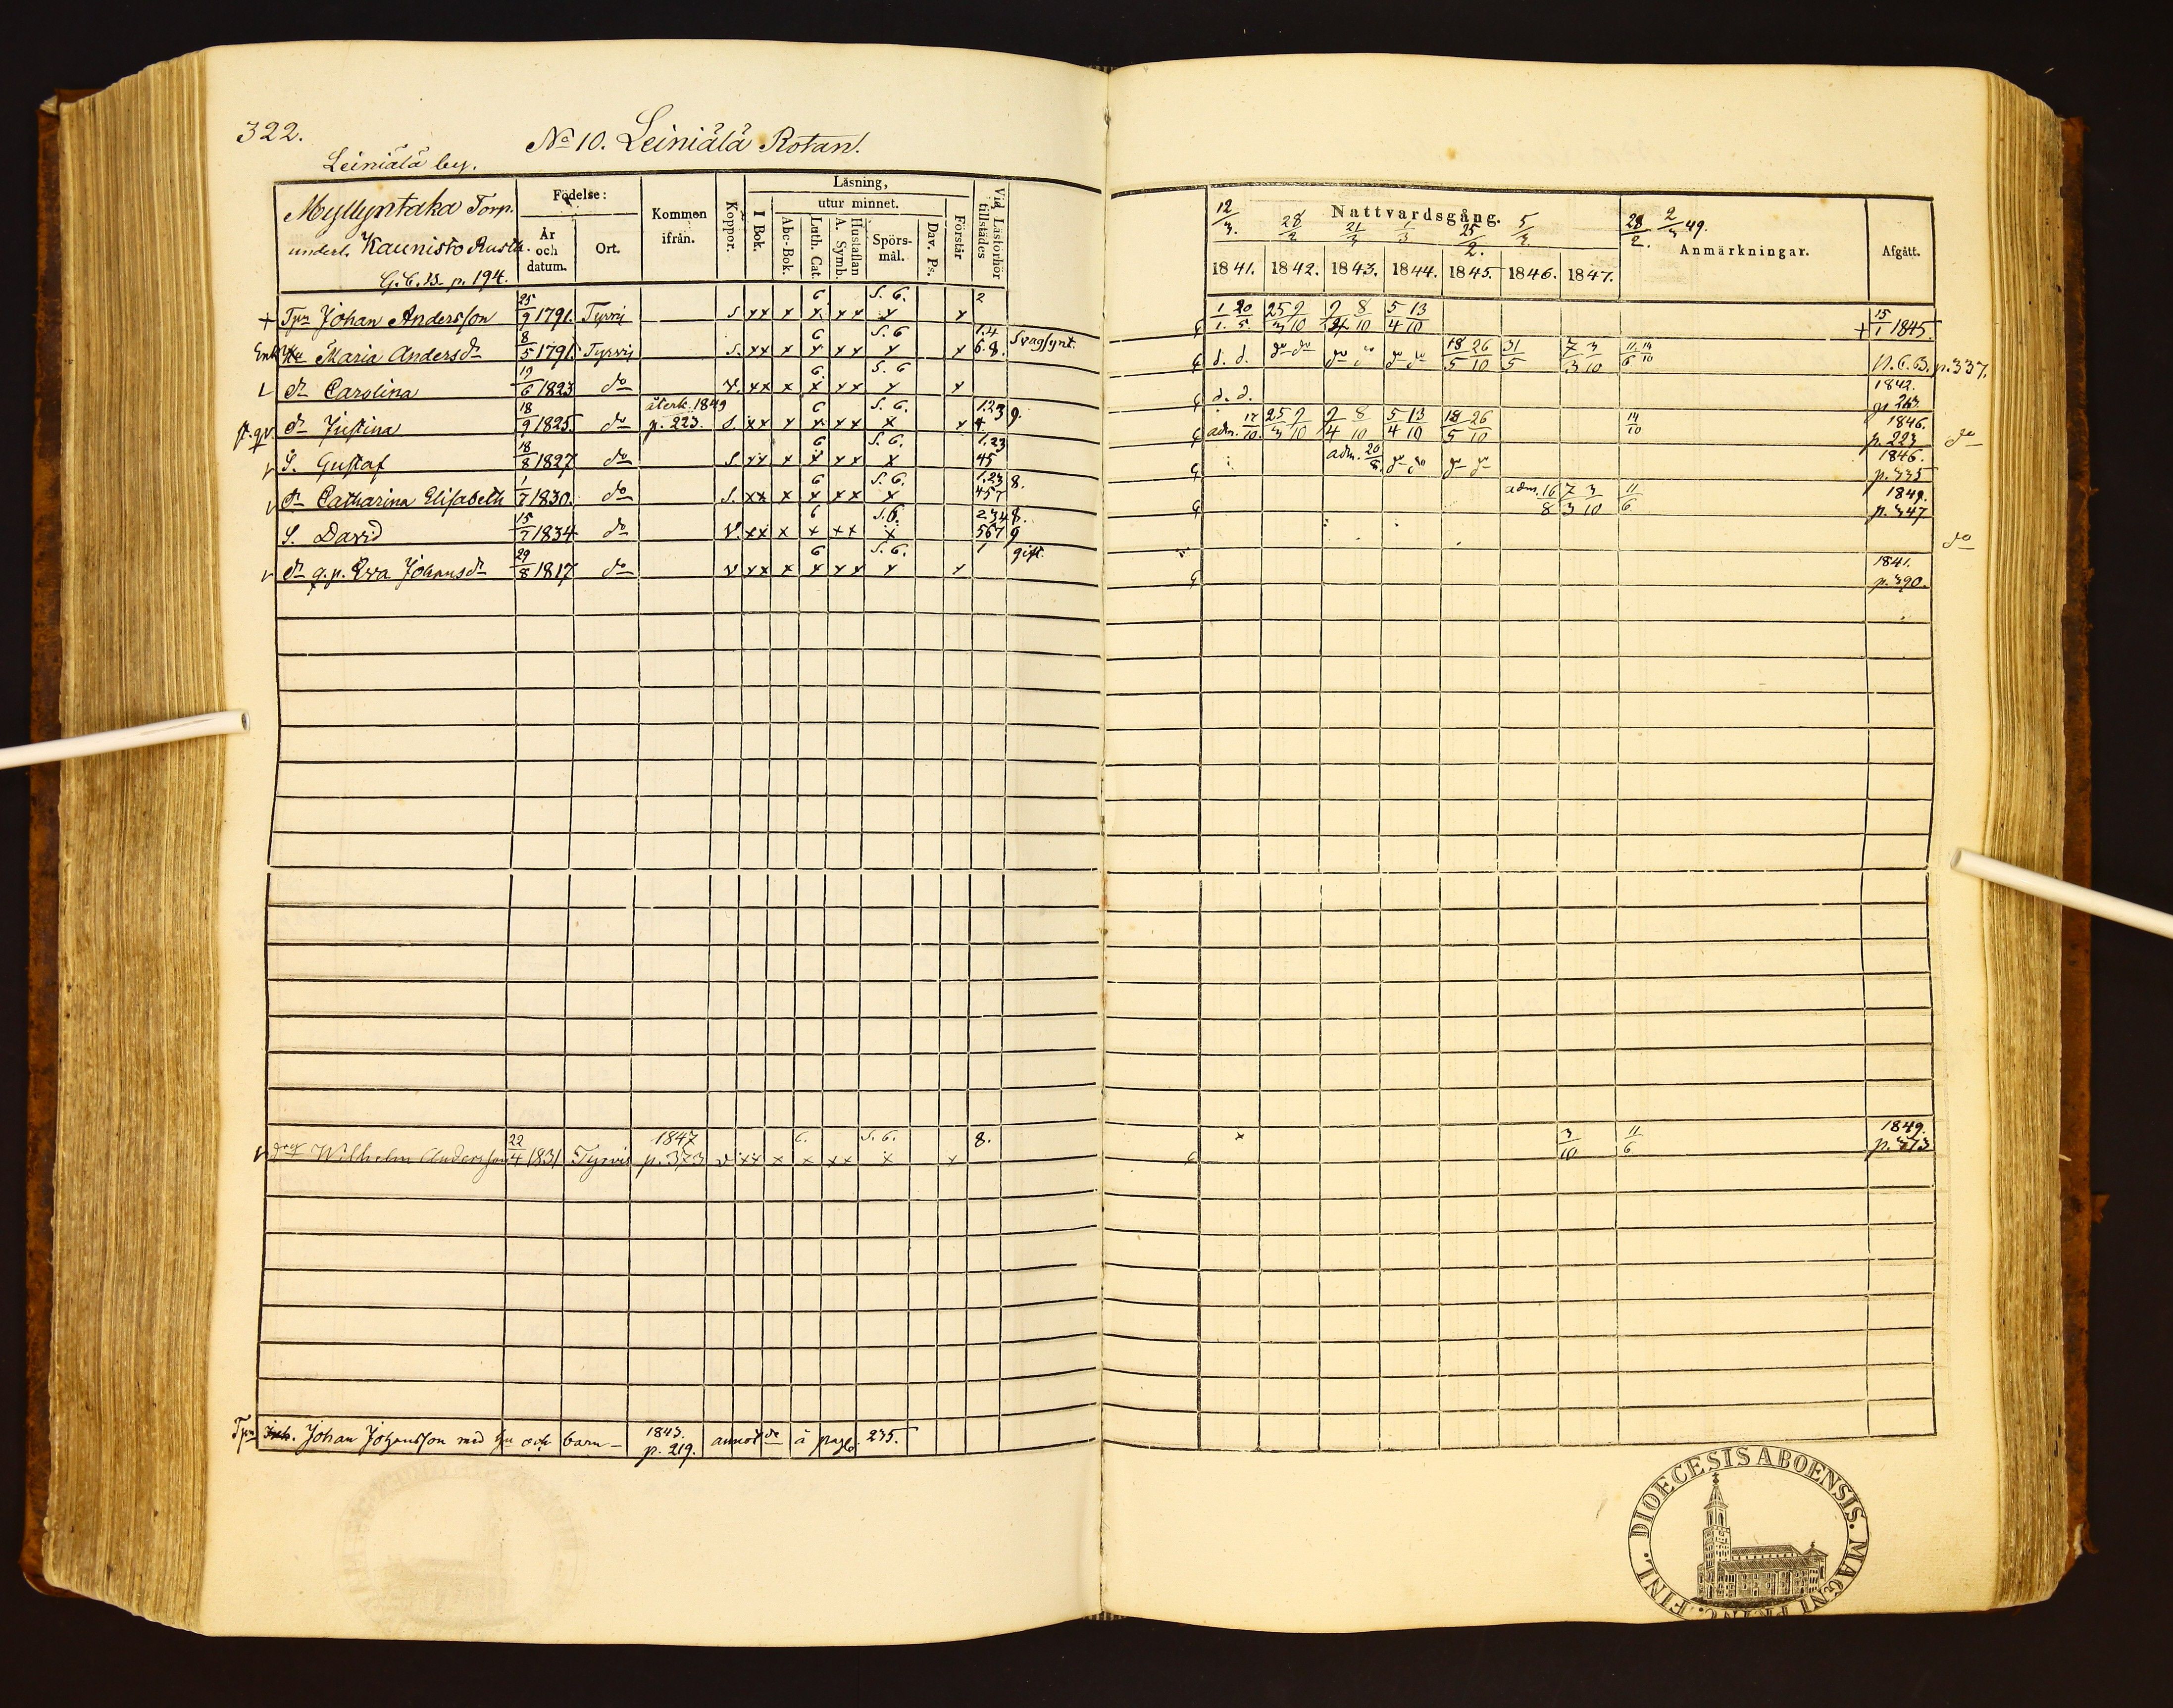 322.
No 10. Leiniälä Rotan.
Leiniälä by.
Myllyntaka Torp.
underl. Kaunisto Rusth.
G. C. B. p. 194.
Födelse:
År och datum.
Ort.
Kommen ifrån.
Koppor.
Läsning,
I Bok.
utur minnet.
Abc-Bok.
Luth. Cat.
Hustaflan
A. Symb.
Spörs-mål.
Dav. Ps.
Förstår
Vid Läsförhör tillstädes
Nattvardsgång.
12/3. 28/2 21/3 1/3 25/2. 5/3 28/2. 2/3 49.
1841. 1842. 1843. 1844. 1845. 1846. 1847.
Anmärkningar.
Afgått.
+ Tpn Johan Andersson 25/9 1791. Tyrvis S xx x x xx x x 2
G. S. G.
1/1. 20/5. 25/3 9/10 9/4 8/10 5/4 13/10 + 15/1 1845.
Enk. Hu Maria Andersdr 8/5 1791. Tyrvis S. xx x x xx x x 1.4 6.8. Svagsynt.
G S. G
d. d. do do do do do do 18/5 26/10 31/5 7/3 3/10 11/6 14/10 N. C. B. p. 337.
dr Carolina 19/6 1823 do V. xx x x xx x x
G. S. G
d. d. 1842. p. 263.
dr Justina 18/9 1825. do återk. 1849 p. 223. S. xx x x xx x x 1.23 9. 4
G S. G.
adm. 17/10. 25/3 9/10 9/4 8/10 5/4 13/10 18/5 26/10 14/10 1846. p. 223 do
S. Gustaf 18/8 1827 do S xx x x xx x 1.23 45
G S. G.
adm. 20/8. do do do do 1846. p. 335
dr Catharina Elisabeth 1/7 1830. do S. xx x x xx x 1.23 8. 457
G S. G.
adm. 16/8 7/3 3/10 11/6 1849. p. 347
S. David 15/7 1834 do V. xx x x xx x 234 8. 567 9
G S. G.
do
dr g. p. Eva Johansdr 29/8 1817 do V xx x x xx x x 1 gift.
G S. G.
1841. p. 390.
drg Wilhelm Andersson 22/4 1831 Tyrvis 1847 p. 373 v xx x x xx x x 8.
G. S. G.
x 3/10 11/6 1849. p. 373
Tpn Johan Johansson med hu och barn – 1843. p. 219. annot de å pag. 235.
FINL. DIOECESIS ABOENSIS. MAGNI PRINC.